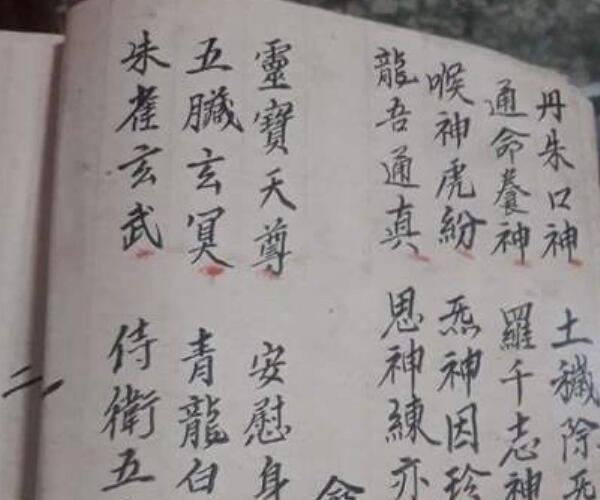 丹朱口神 土穢除炁
通命養神 羅千志神
喉神虎紛 炁神因珍
龍吾通真 思神練亦
靈寶天尊 安慰身
五臟玄冥 青龍白
朱雀玄武 侍衛五
二